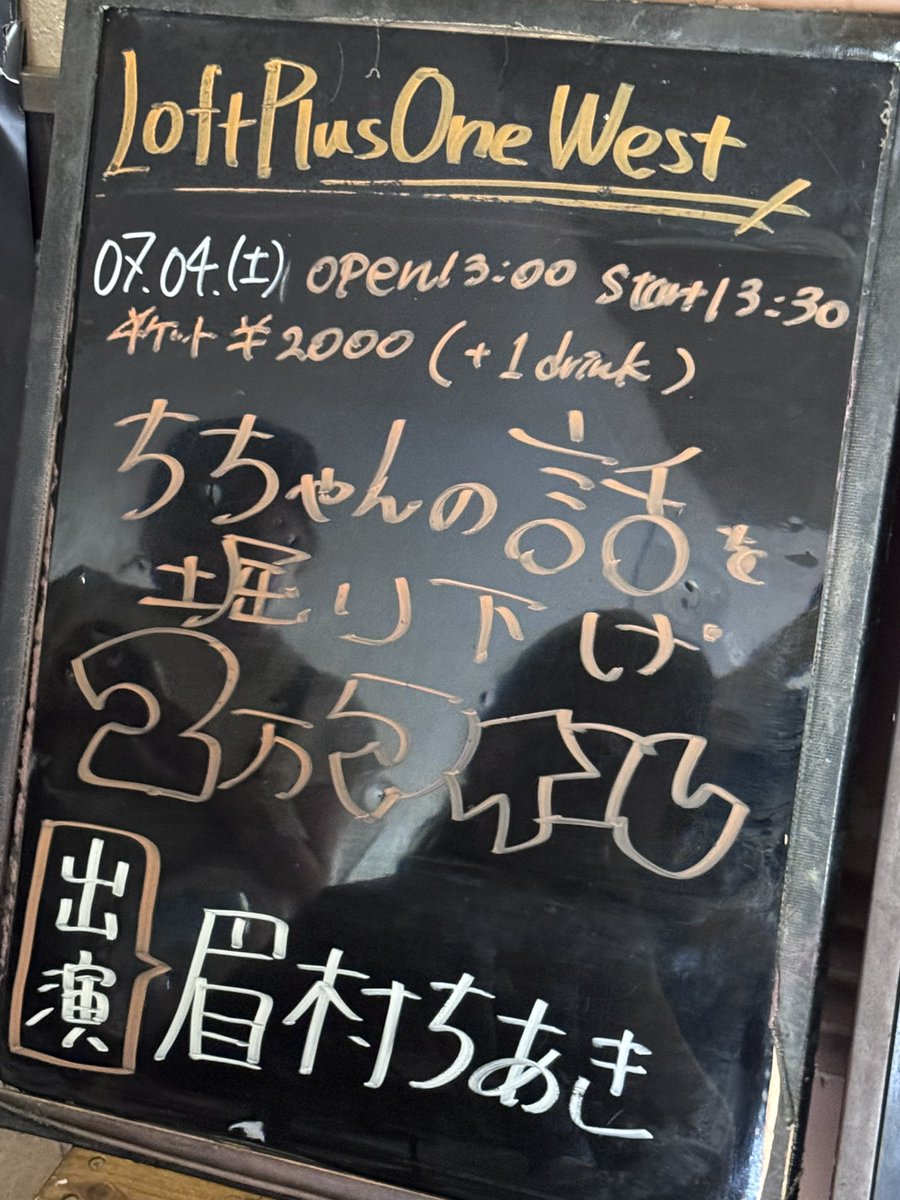 Loft Plus One West
07.04.(土) open13:00 Start13:30
チケット ¥2000 (+1drink)
ちちゃんの話を
堀り下げ
2万
出演
眉村ちあき